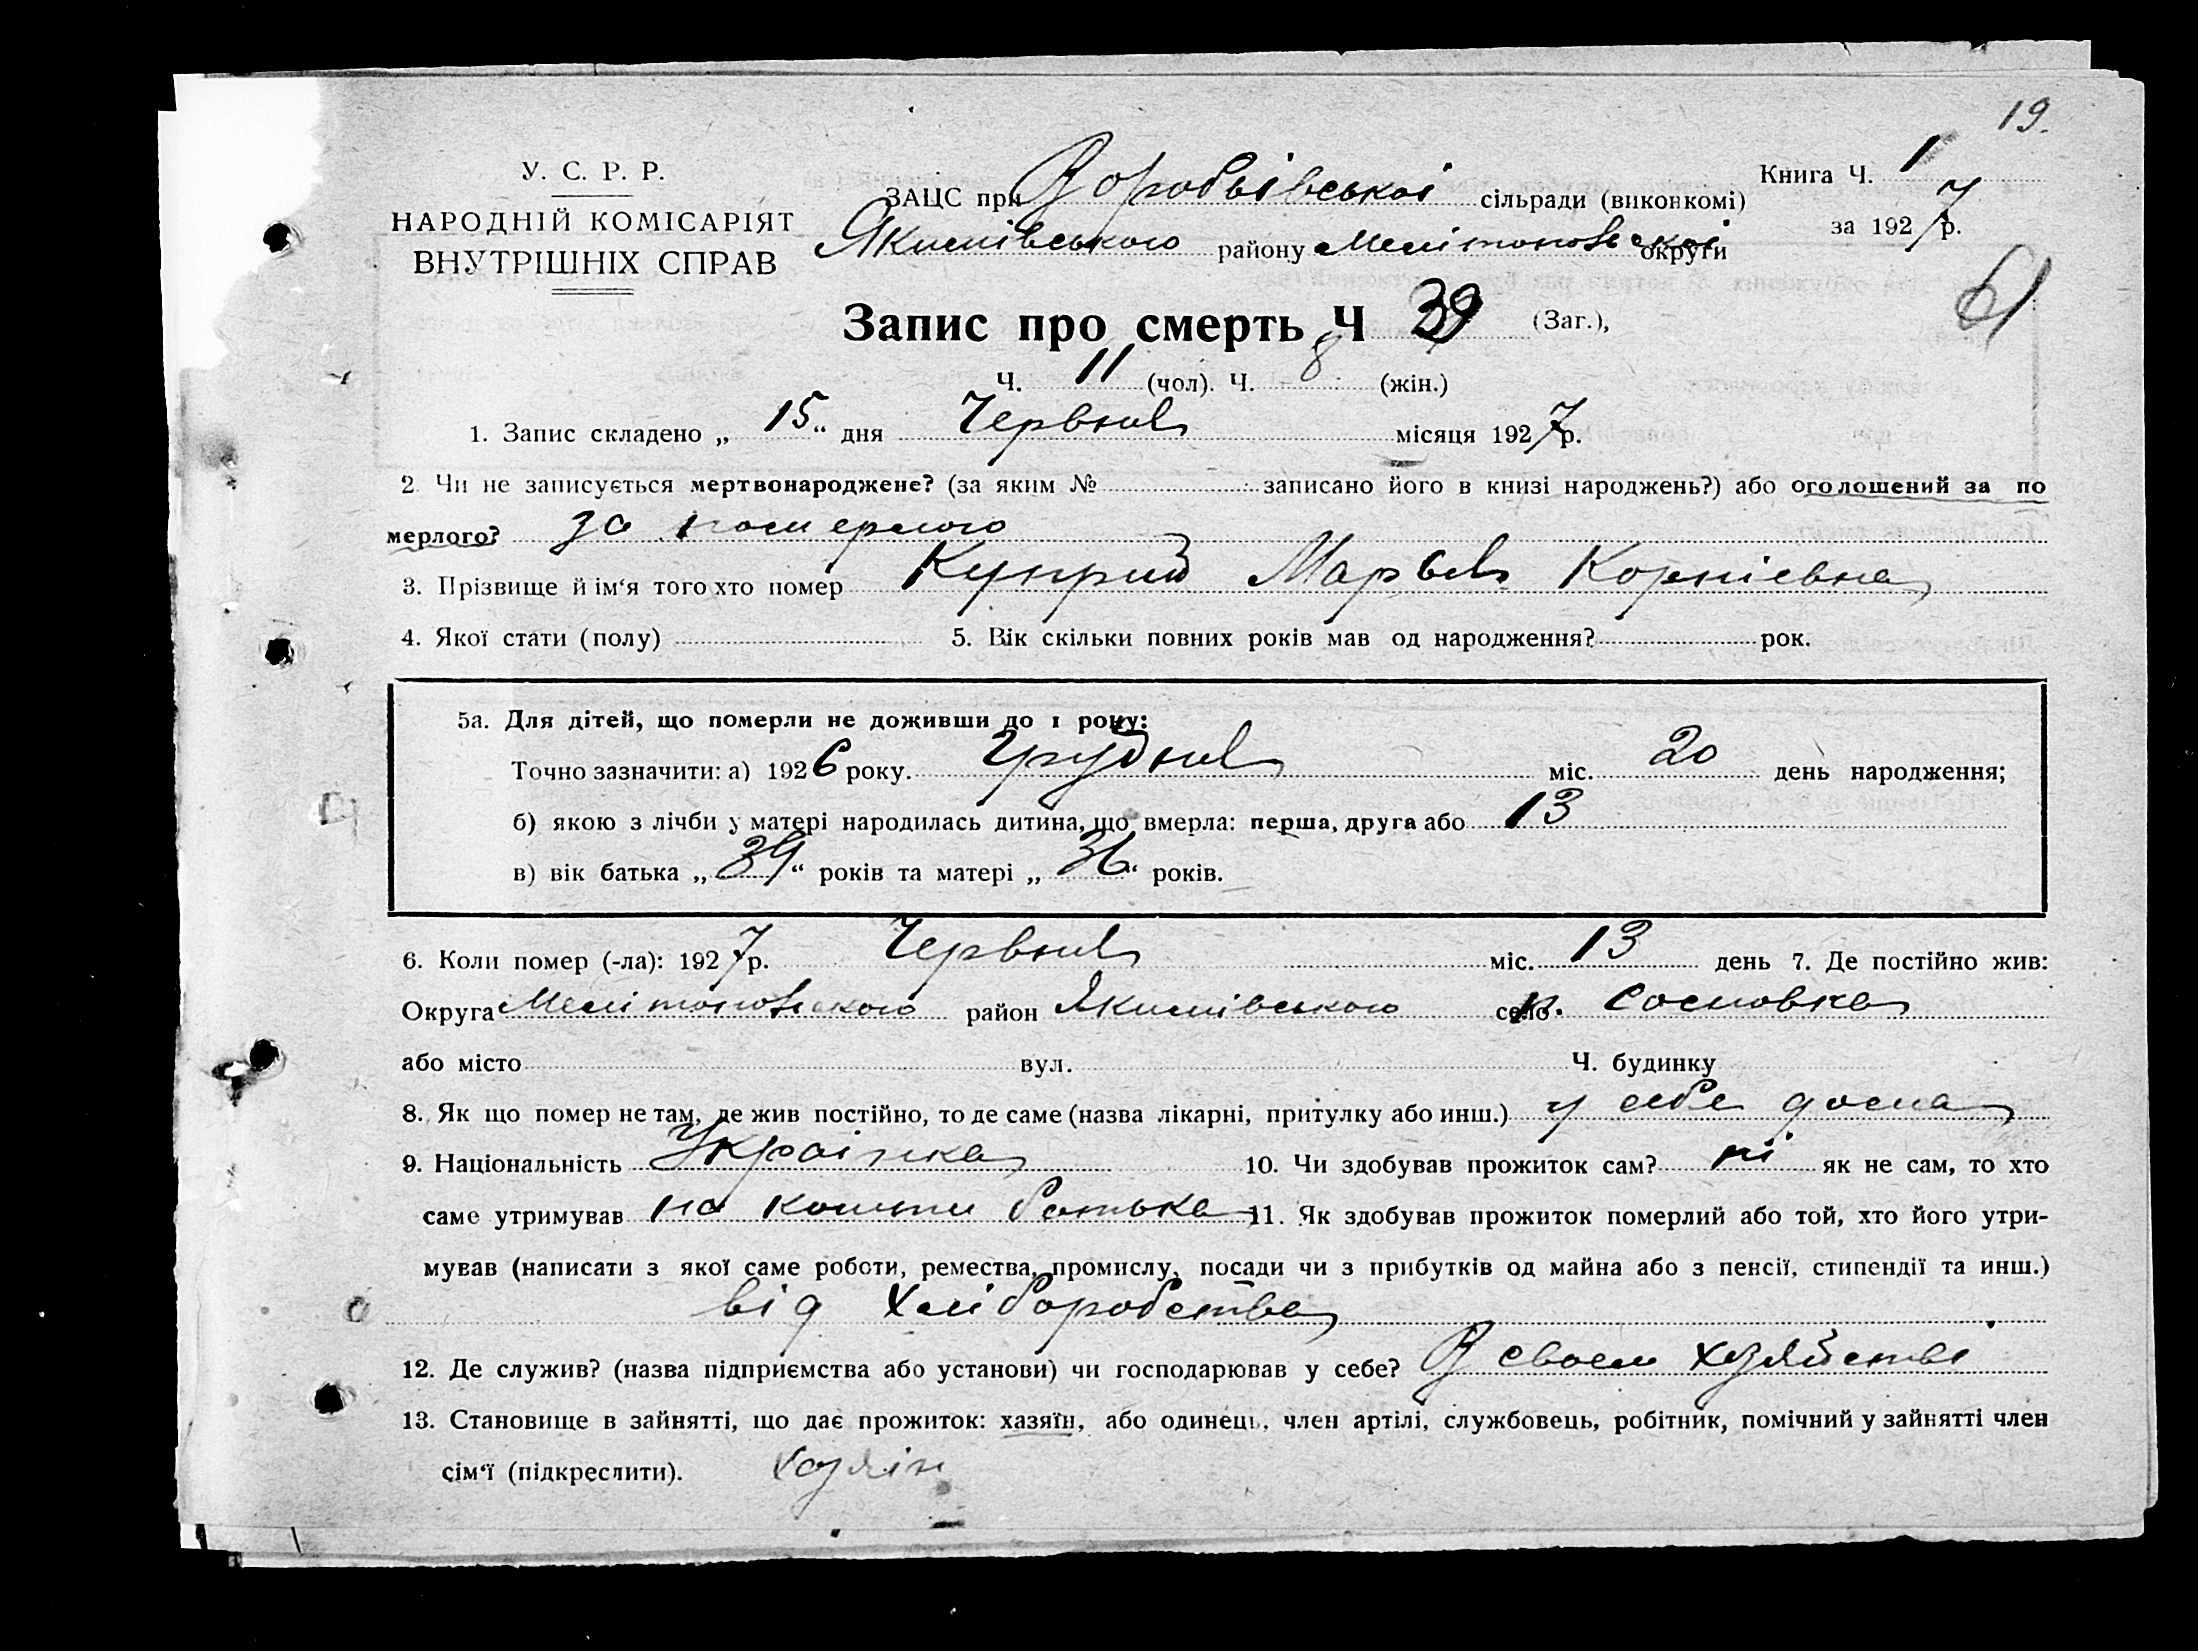 19.
У. С. Р. Р.
НАРОДНІЙ КОМІСАРІЯТ
ВНУТРІШНІХ СПРАВ
ЗАЦС при Воробьівської сільради (виконкомі)
Якимівського району Мелітопольської округи
Книга Ч. 1
за 1927 р.
61
Запис про смерть Ч 39 (Заг.),
Ч. 11 (чол). Ч. 8 (жін.)
1. Запис складено „ 15 “ дня Червня місяця 1927 р.
2. Чи не записується мертвонароджене? (за яким № записано його в книзі народжень?) або оголошений за по
мерлого? за померлого
3. Прізвище й ім‘я того хто помер Куприй Марья Корніевна
4. Якої стати (полу) 5. Вік скільки повних років мав од народження? рок.
5а. Для дітей, що померли не доживши до 1 року:
Точно зазначити: а) 1926 року. Грудня міс. 20 день народження;
б) якою з лічби у матері народилась дитина, що вмерла: перша, друга або 13
в) вік батька „ 39 “ років та матері „ 36 “ років.
6. Коли помер (-ла): 1927 р. Червня міс. 13 день 7. Де постійно жив:
Округа Мелітопольського район Якимівського село Сосновка
або місто вул. Ч. будинку
8. Як що помер не там, де жив постійно, то де саме (назва лікарні, притулку або инш.) у себе дома
9. Національність Украінка 10. Чи здобував прожиток сам? ні як не сам, то хто
саме утримував на кошти батька 11. Як здобував прожиток померлий або той, хто його утри-
мував (написати з якої саме роботи, ремества, промислу, посади чи з прибутків од майна або з пенсії, стипендії та инш.)
від хліборобства
12. Де служив? (назва підприємства або установи) чи господарював у себе? В своем хозяйстві
13. Становище в зайнятті, що дає прожиток: хазяїн, або одинець, член артілі, службовець, робітник, помічний у зайнятті член
сім‘ї (підкреслити). Хозяін